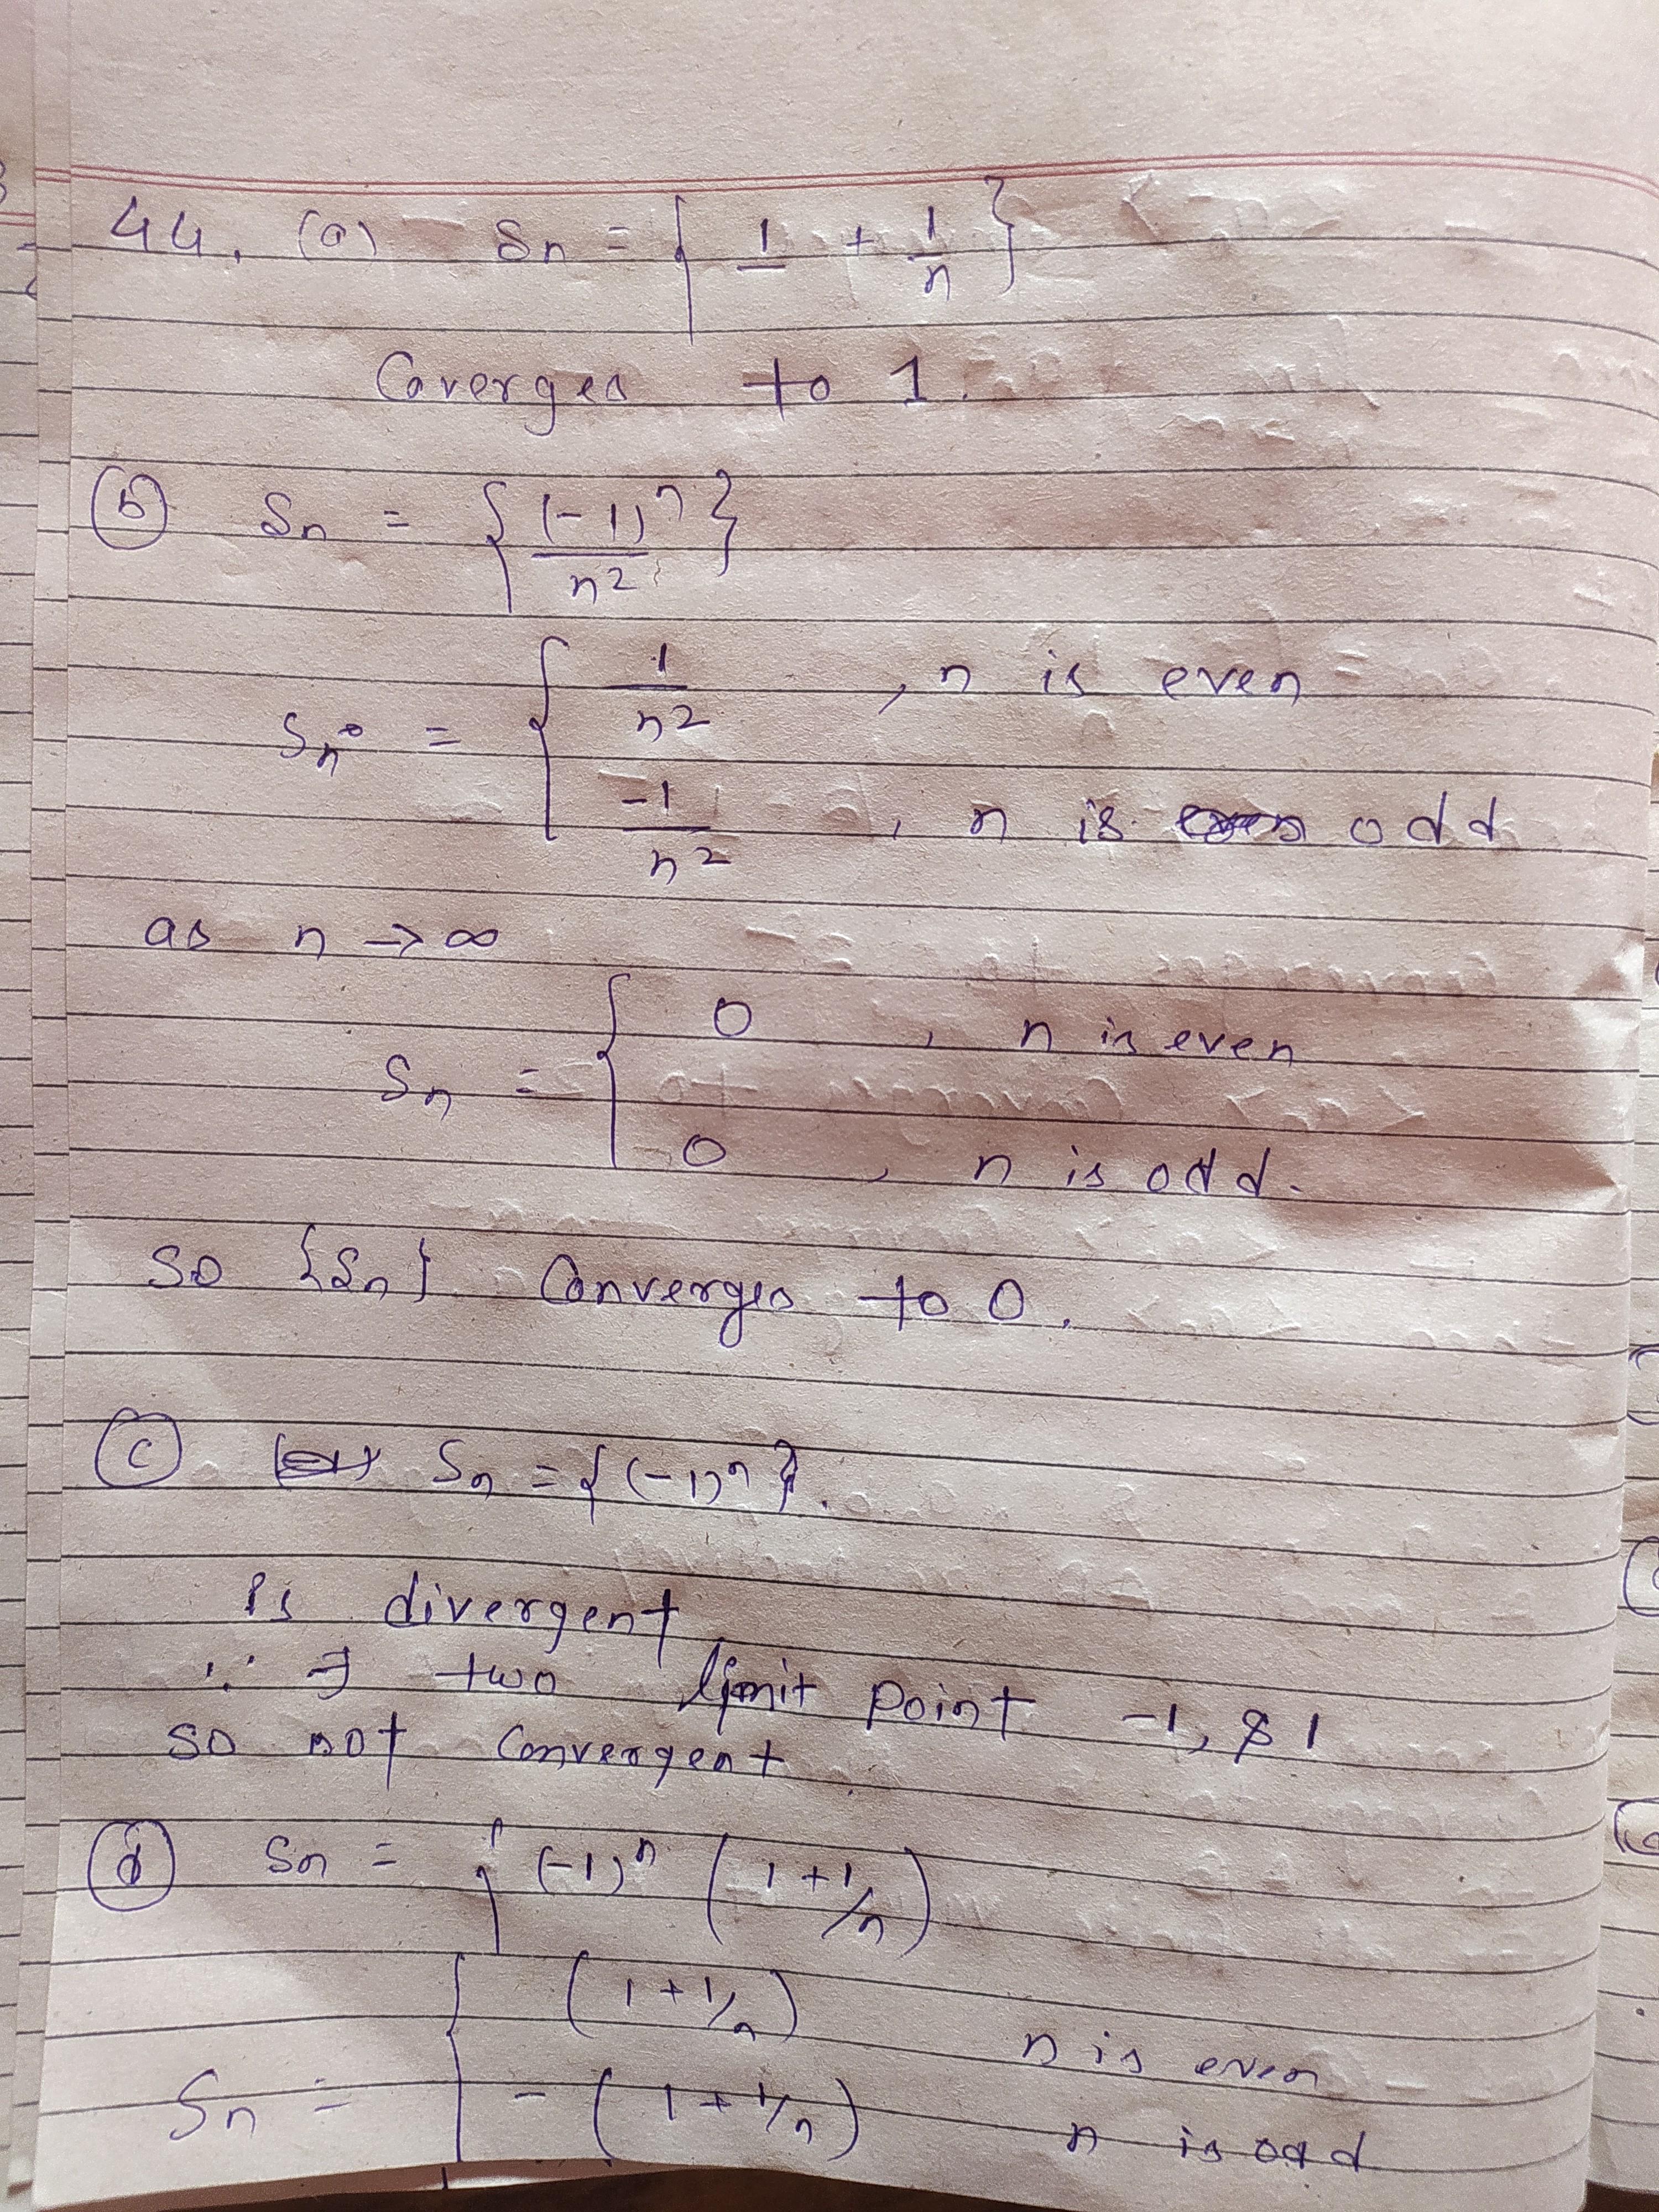 44. (a) Sn = { 1 + 1/n }
Coverges to 1.
(b) Sn = { (-1)^n / n2 }
Sn = { 1/n2 , n is even
-1/n2 , n is odd
as n → ∞
Sn = { 0 , n is even
0 , n is odd.
so {Sn} Converges to 0.
(c) Sn = { (-1)^n }.
is divergent
∵ ∃ two limit point -1, & 1
so not convergent
(d) Sn = { (-1)^n ( 1 + 1/n )
Sn = { ( 1 + 1/n ) n is even
- ( 1 + 1/n ) n is odd